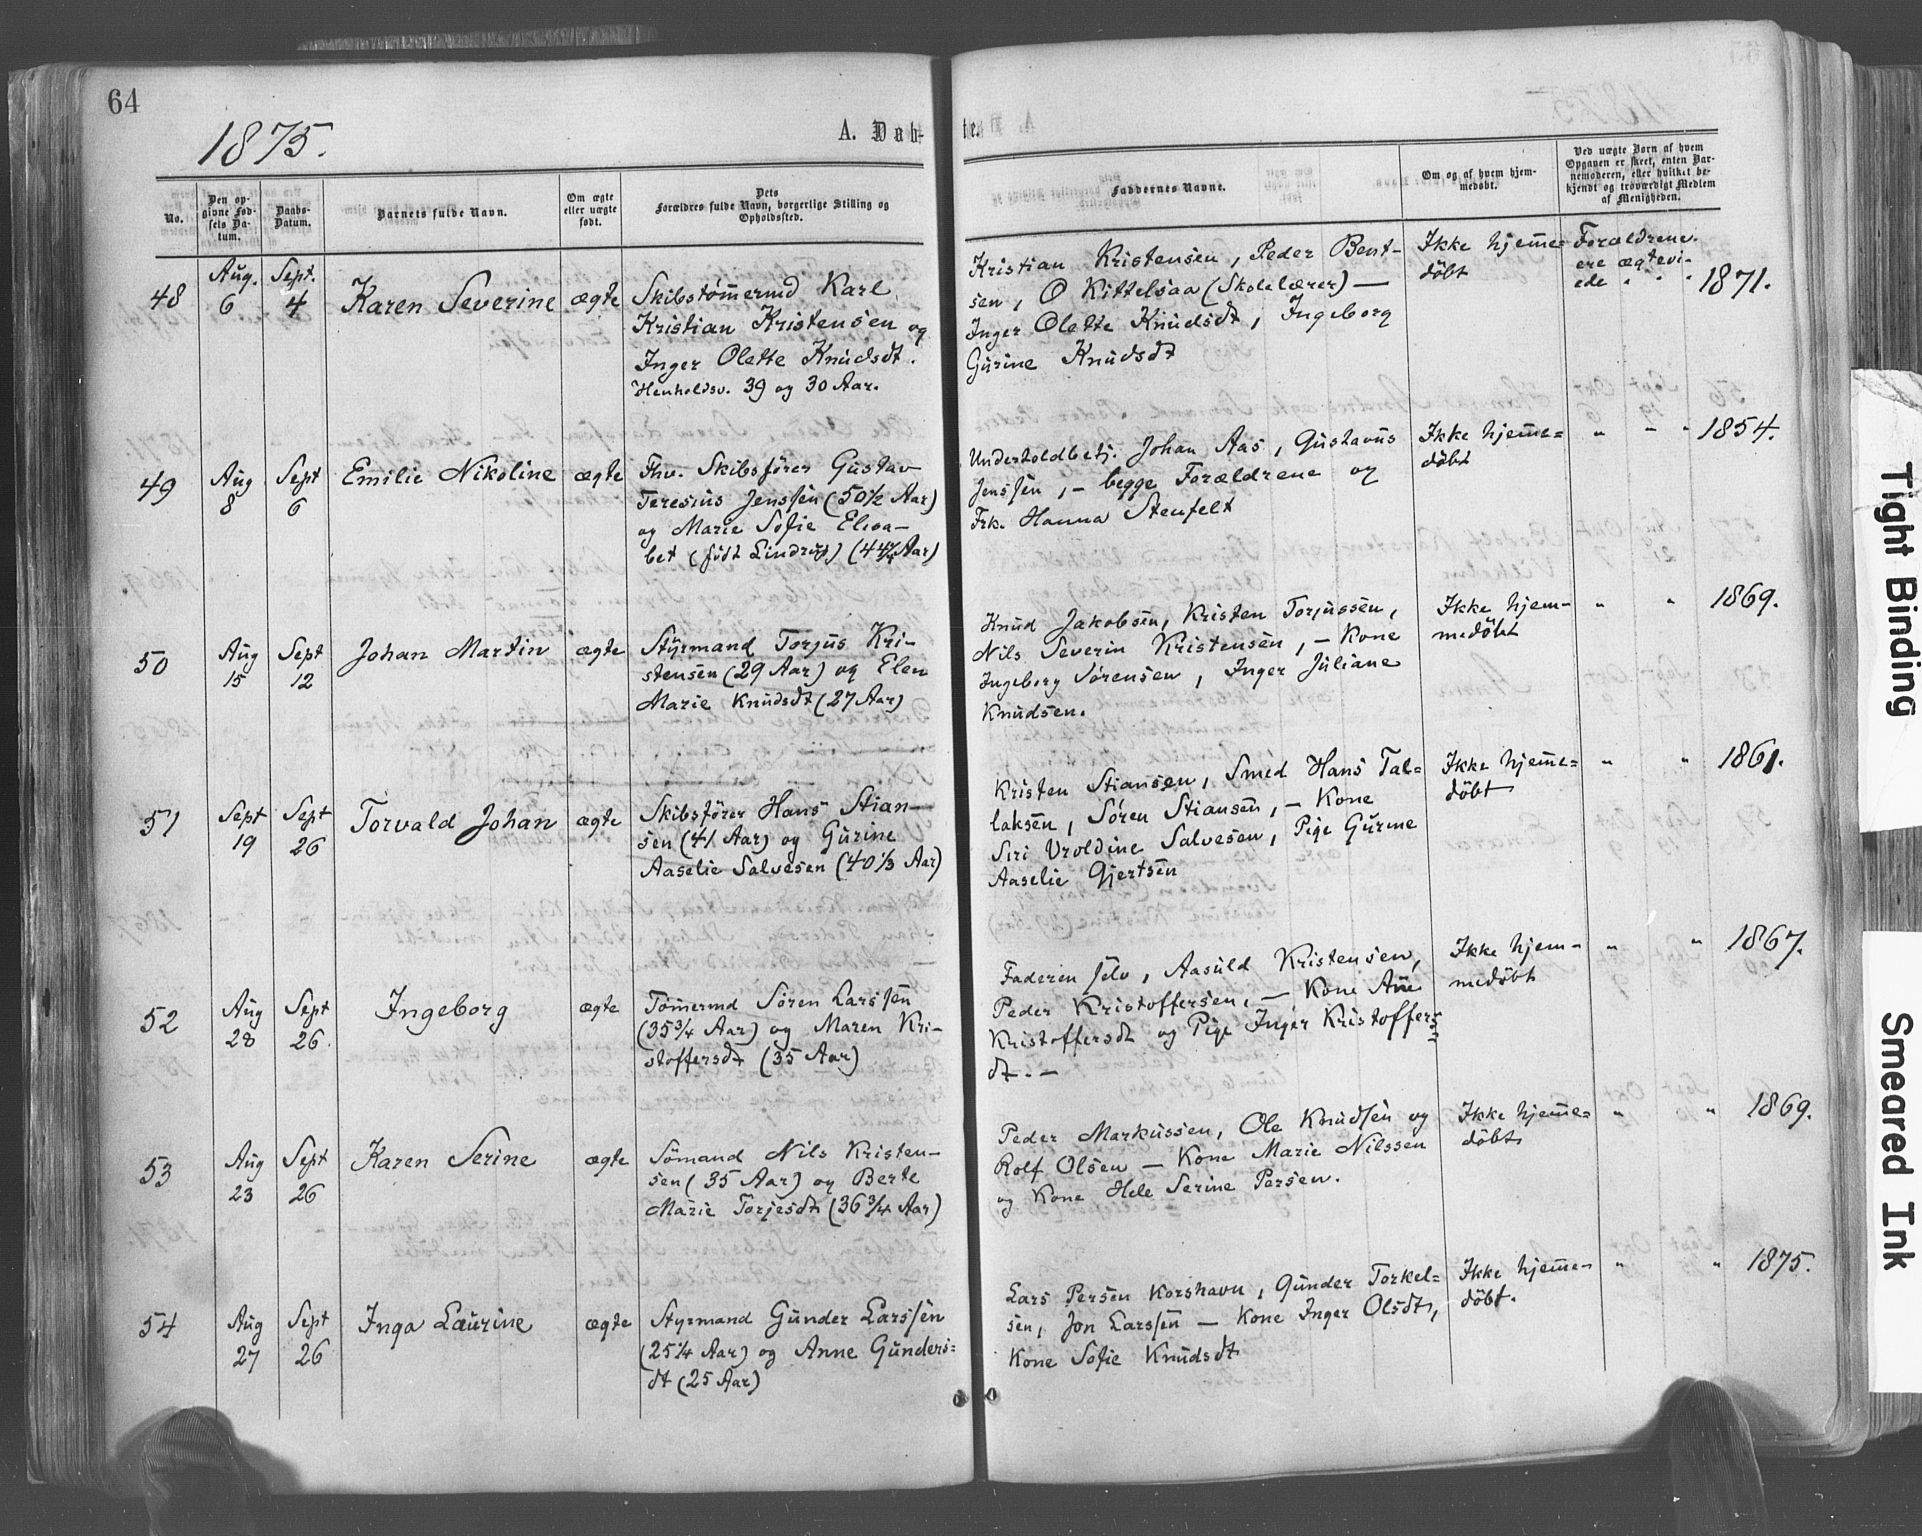 64
1875.
A. Døb-
te.
No.
Den op-
givne Fød-
sels Da-
tum.
Daabs-
Datum.
Barnets fulde Navn.
Om ægte
eller uægte
født.
Dets
Forældres fulde Navn, borgerlige Stilling og
Opholdssted.
Faddernes Navne.
Om og af hvem hjem-
medøbt.
Ved uægte Børn af hvem
Opgaven er skeet, enten Bar-
nemoderen, eller hvilket be-
kjendt og troværdigt Medlem
af Menigheden.
48
Aug.
6
Sept.
4
Karen Severine
ægte
Skibstømermd Karl
Kristian Kristensen og
Inger Olette Knudsdt.
Henholdsv. 39 og 30 Aar.
Kristian Kristensen, Peder Bent-
sen, O Kittelsaa (Skolelærer) —
Inger Olette Knudsdt, Ingeborg
Gurine Knudsdt
Ikke hjeme=
døbt
Forældrene
ere ægtevi-
ede " "
1871.
49
Aug
8
Sept
6
Emilie Nikoline
ægte
Fhv. Skibsfører Gustav
Teresius Jenssen (50½ Aar)
og Marie Sofie Elisa-
bet (født Lindrup) (44¼ Aar)
Underfoldbetj. Johan Aas, Gustavus
Jenssen, — begge Forældrene og
Frk. Hanna Stenfelt
Ikke hjeme=
døbt
" " "
1854.
50
Aug
15
Sept
12
Johan Martin
ægte
Styrmand Torjus Kri-
stensen (29 Aar) og Elen
Marie Knudsdt (27 Aar)
Knud Jakobsen, Kristen Torjussen,
Nils Severin Kristensen, — Kone
Ingeborg Sørensen, Inger Juliane
Knudsen.
Ikke hjem-
medøbt
" "
1869.
51
Sept
19
Sept
26
Torvald Johan
ægte
Skibsfører Hans Stian-
sen (41 Aar) og Gurine
Aaselie Salvesen (40⅓ Aar)
Kristen Stiansen, Smed Hans Tal-
laksen, Søren Stiansen, — Kone
Siri Uroldine Salvesen, Pige Gurine
Aaselie Gjertsen
Ikke hjeme=
døbt
" "
1861.
52
Aug
28
Sept
26.
Ingeborg
ægte
Tømermd Søren Larssen
(35¾ Aar) og Maren Kri-
stoffersdt (35 Aar)
Faderen selv, Aasuld Kristensen,
Peder Kristoffersen, — Kone Ane
Kristoffersdt og Pige Inger Kristoffers=
dt. —
Ikke hjem-
medøbt
" "
1867.
53
Aug
23
Sept
26
Karen Serine
ægte
Sømand Nils Kristen-
sen (35 Aar) og Berte
Marie Torjesdt (36¾ Aar)
Peder Markussen, Ole Knudsen og
Rolf Olsen — Kone Marie Nilssen
og Kone Hele Serine Persen.
Ikke hjeme=
døbt
" "
1869.
54
Aug
27
Sept
26
Inga Laurine
ægte
Styrmand Gunder Larssen
(25¼ Aar) og Anne Gunders=
dt (25 Aar)
Lars Persen Korshavn, Gunder Torkel=
sen, Jon Larssen — Kone Inger Olsdt,
Kone Sofie Knudsdt
Ikke hjeme-
døbt.
" "
1875.
Tight Binding
Smeared Ink